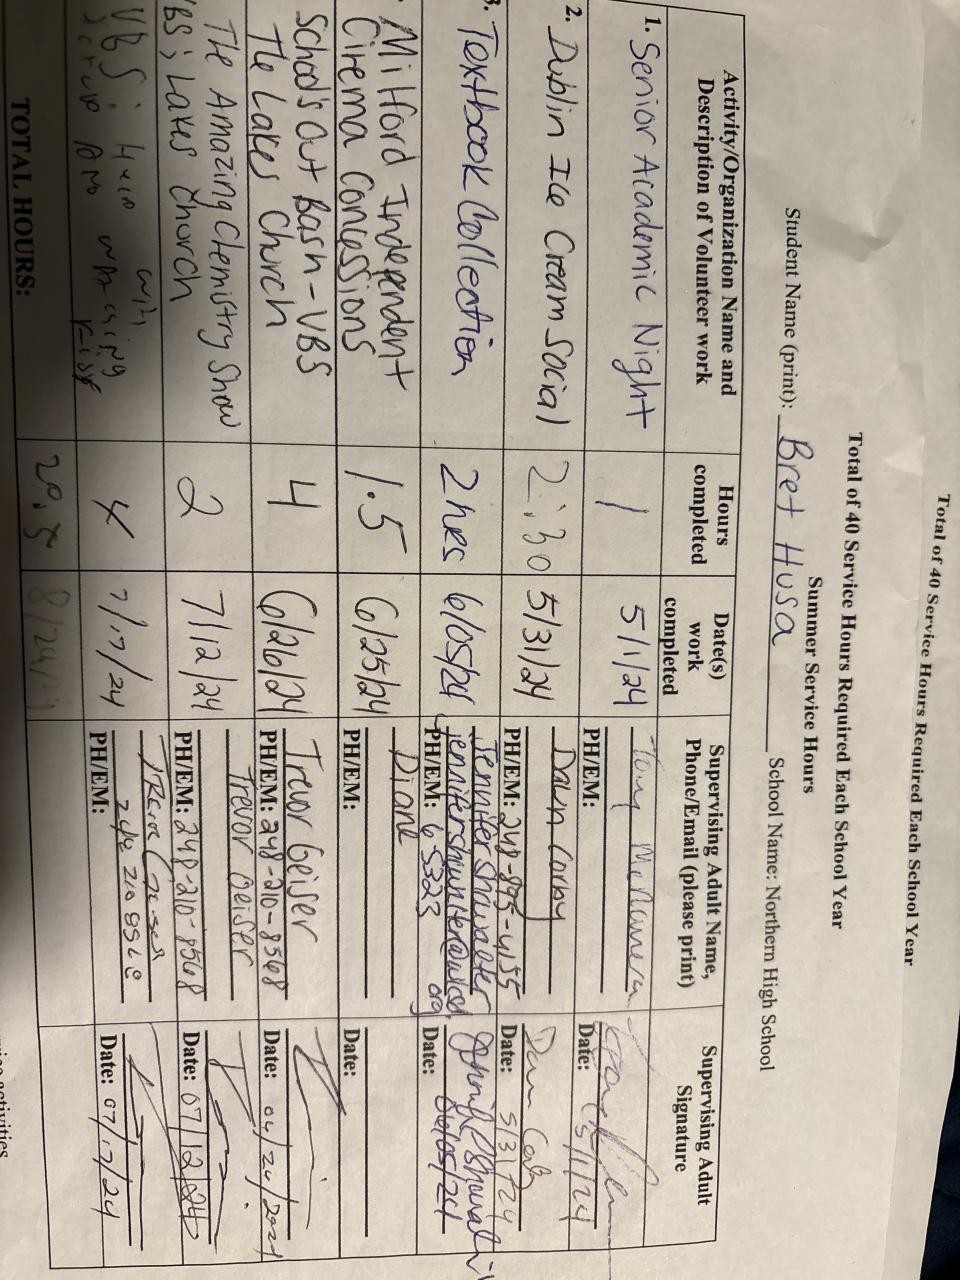 Total of 40 Service Hours Required Each School Year
Total of 40 Service Hours Required Each School Year
Summer Service Hours
Student Name (print): Bret Husa School Name: Northern High School
Activity/Organization Name and Description of Volunteer work
Hours completed
Date(s) work completed
Supervising Adult Name, Phone/Email (please print)
Supervising Adult Signature
1. Senior Academic Night
1
5/1/24
Tony
PH/EM:
Date: 5/1/24
2. Dublin Ice Cream Social
2:30
5/31/24
Dawn
PH/EM: 248-895-4155
Date: 5/31/24
3. Textbook Collection
2 hrs
6/05/24
Jennifer
PH/EM:
Date:
Milford Independent
Cinema Concessions
1.5
6/25/24
Diane
PH/EM:
Date:
School's Out Bash-VBS
The Lakes Church
4
6/26/24
Trevor Geiser
PH/EM: 248-210-8568
Date:
The Amazing Chemistry Show
VBS; Lakes Church
2
7/12/24
Trevor Geiser
PH/EM: 248-210-8568
Date: 07/12/24
VBS:
4
7/17/24
PH/EM:
Date: 07/17/24
TOTAL HOURS: